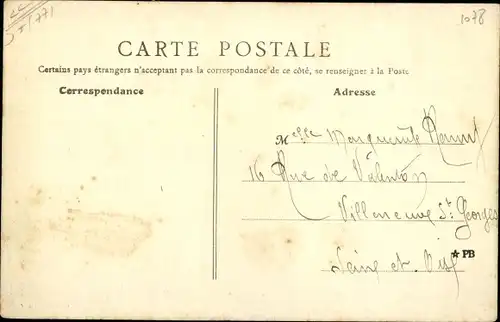 1078
CARTE POSTALE
Certains pays étrangers n'acceptant pas la correspondance de ce côté, se renseigner à la Poste
Correspondance
Adresse
Melle Marguerite
16 Rue de Valenton
Villeneuve St. Georges
★ PB
Seine et Oise